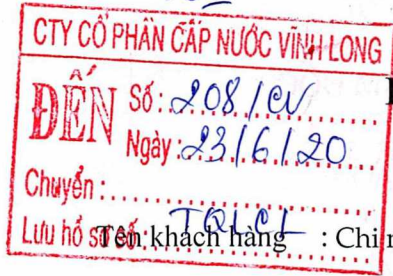 CTY CỔ PHẦN CẤP NƯỚC VĨNH LONG
ĐẾN
Số: 208/CV
Ngày: 23/6/20
Chuyển:
Lưu hồ sơ số:
Tên khách hàng : Chi